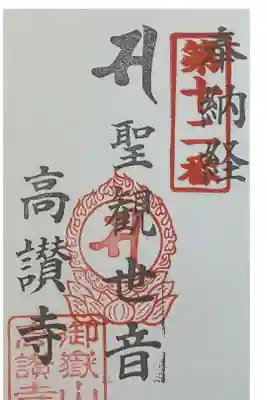 奉納経
第十二番
𑖭 聖観世音
𑖭
高讃寺
御嶽山
高讃寺